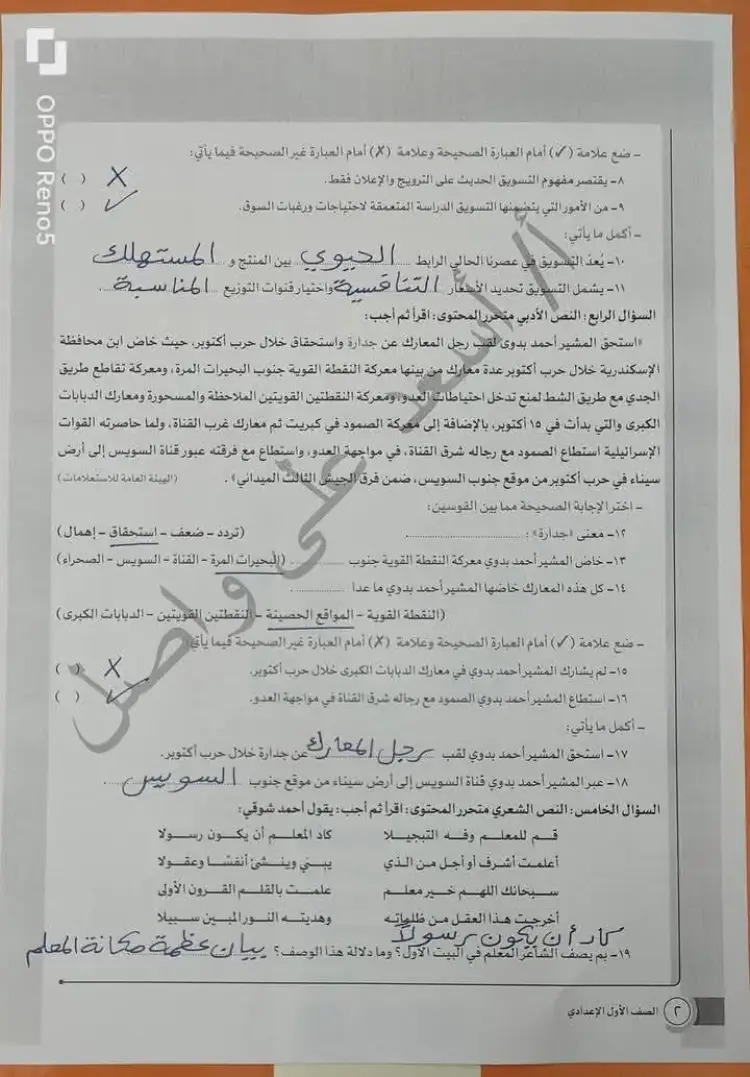 OPPO Reno5
- ضع علامة (✓) أمام العبارة الصحيحة وعلامة (✗) أمام العبارة غير الصحيحة فيما يأتي:
٨- يقتصر مفهوم التسويق الحديث على الترويج والإعلان فقط. ( ) X
٩- من الأمور التي يتضمنها التسويق الدراسة المتعمقة لاحتياجات ورغبات السوق. ( ) ✓
- أكمل ما يأتي:
١٠- يُعدّ التسويق في عصرنا الحالي الرابط الحيوي بين المنتج و المستهلك
١١- يشمل التسويق تحديد الأسعار التنافسية واختيار قنوات التوزيع المناسبة.
السؤال الرابع: النص الأدبي متحرر المحتوى: اقرأ ثم أجب:
«استحق المشير أحمد بدوي لقب رجل المعارك عن جدارة واستحقاق خلال حرب أكتوبر، حيث خاض ابن محافظة
الإسكندرية خلال حرب أكتوبر عدة معارك من بينها معركة النقطة القوية جنوب البحيرات المرة، ومعركة تقاطع طريق
الجدي مع طريق الشط لمنع تدخل احتياطات العدو، ومعركة النقطتين القويتين الملاحظة والمسحورة ومعارك الدبابات
الكبرى والتي بدأت في ١٥ أكتوبر، بالإضافة إلى معركة الصمود في كبريت ثم معارك غرب القناة، ولما حاصرته القوات
الإسرائيلية استطاع الصمود مع رجاله شرق القناة، في مواجهة العدو، واستطاع مع فرقته عبور قناة السويس إلى أرض
سيناء في حرب أكتوبر من موقع جنوب السويس، ضمن فرق الجيش الثالث الميداني». (الهيئة العامة للاستعلامات)
- اختر الإجابة الصحيحة مما بين القوسين:
١٢- معنى «جدارة»: .................... (تردد - ضعف - استحقاق - إهمال)
١٣- خاض المشير أحمد بدوي معركة النقطة القوية جنوب .......... (البحيرات المرة - القناة - السويس - الصحراء)
١٤- كل هذه المعارك خاضها المشير أحمد بدوي ما عدا ..........
(النقطة القوية - المواقع الحصينة - النقطتين القويتين - الدبابات الكبرى)
- ضع علامة (✓) أمام العبارة الصحيحة وعلامة (✗) أمام العبارة غير الصحيحة فيما يأتي:
١٥- لم يشارك المشير أحمد بدوي في معارك الدبابات الكبرى خلال حرب أكتوبر. ( ) X
١٦- استطاع المشير أحمد بدوي الصمود مع رجاله شرق القناة في مواجهة العدو. ( ) ✓
- أكمل ما يأتي:
١٧- استحق المشير أحمد بدوي لقب رجل المعارك عن جدارة خلال حرب أكتوبر.
١٨- عبر المشير أحمد بدوي قناة السويس إلى أرض سيناء من موقع جنوب السويس.
السؤال الخامس: النص الشعري متحرر المحتوى: اقرأ ثم أجب: يقول أحمد شوقي:
قم للمعلم وفه التبجيلا كاد المعلم أن يكون رسولا
أعلمت أشرف أو أجل من الذي يبني وينشئ أنفسًا وعقولا
سبحانك اللهم خير معلم علمت بالقلم القرون الأولى
أخرجت هذا العقل من ظلماته وهديته النور المبين سبيلا
كاد أن يكون رسولاً
١٩- بم يصف الشاعر المعلم في البيت الأول؟ وما دلالة هذا الوصف؟ بيان عظمة مكانة المعلم
٢ الصف الأول الإعدادي
أ/ أسعد على واصل